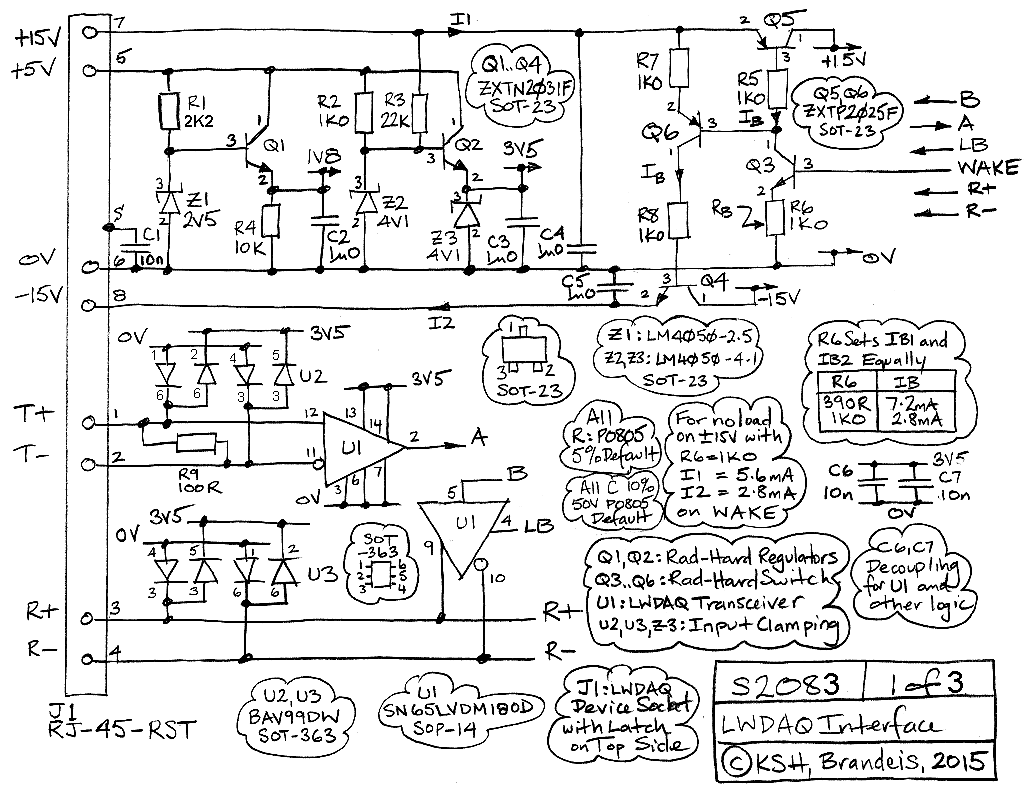 +15V 7 I1 2 Q5
+5V 5
Q1..Q4
ZXTN2Ø31F
SOT-23
R7
1K0
1
3
+15V
R5
1K0
Q5,Q6
ZXTP2Ø25F
SOT-23
B
A
LB
WAKE
R+
R-
R1
2K2
R2
1K0
R3
22K
3 1 Q1 2
1V8
3 1 Q2 2
3V5
2
Q6 3
1
IB
IB
Q3 3
1
2
3
Z1
2V5
2
R4
10K
C2
1u0
3
Z2
4V1
2
3
Z3
4V1
2
C3
1u0
C4
1u0
R8
1K0
RB
R6
1K0
S
C1
10n
0V 6
0V
C5
1u0
3 Q4
2 1
-15V
-15V 8
I2
0V 3V5
1 2 4 5
U2
6 6 3 3
1
3 2
SOT-23
Z1: LM4Ø5Ø-2.5
Z2,Z3: LM4Ø5Ø-4.1
SOT-23
R6 Sets IB1 and
IB2 Equally
R6 IB
390R 7.2mA
1K0 2.8mA
3V5
T+ 1
12 13 14
U1
2 A
T- 2
11
3 6 7
R9
100R
0V
All
R: P0805
5% Default
All C 10%
50V P0805
Default
For no load
on ±15V with
R6=1K0
I1 = 5.6mA
I2 = 2.8mA
on WAKE
C6
10n
3V5
C7
10n
0V
B
5
U1
4 LB
9
10
3V5
0V
4 5 1 2
U3
3 3 6 6
SOT
-363
1 6
2 5
3 4
Q1,Q2: Rad-Hard Regulators
Q3..Q6: Rad-Hard Switch
U1: LWDAQ Transceiver
U2,U3,Z3: Input Clamping
C6,C7
Decoupling
for U1 and
other logic
R+ 3 R+
R- 4 R-
J1
RJ-45-RST
U2,U3
BAV99DW
SOT-363
U1
SN65LVDM180D
SOP-14
J1: LWDAQ
Device Socket
with Latch
on Top Side
S2083 1 of 3
LWDAQ Interface
© KSH, Brandeis, 2015